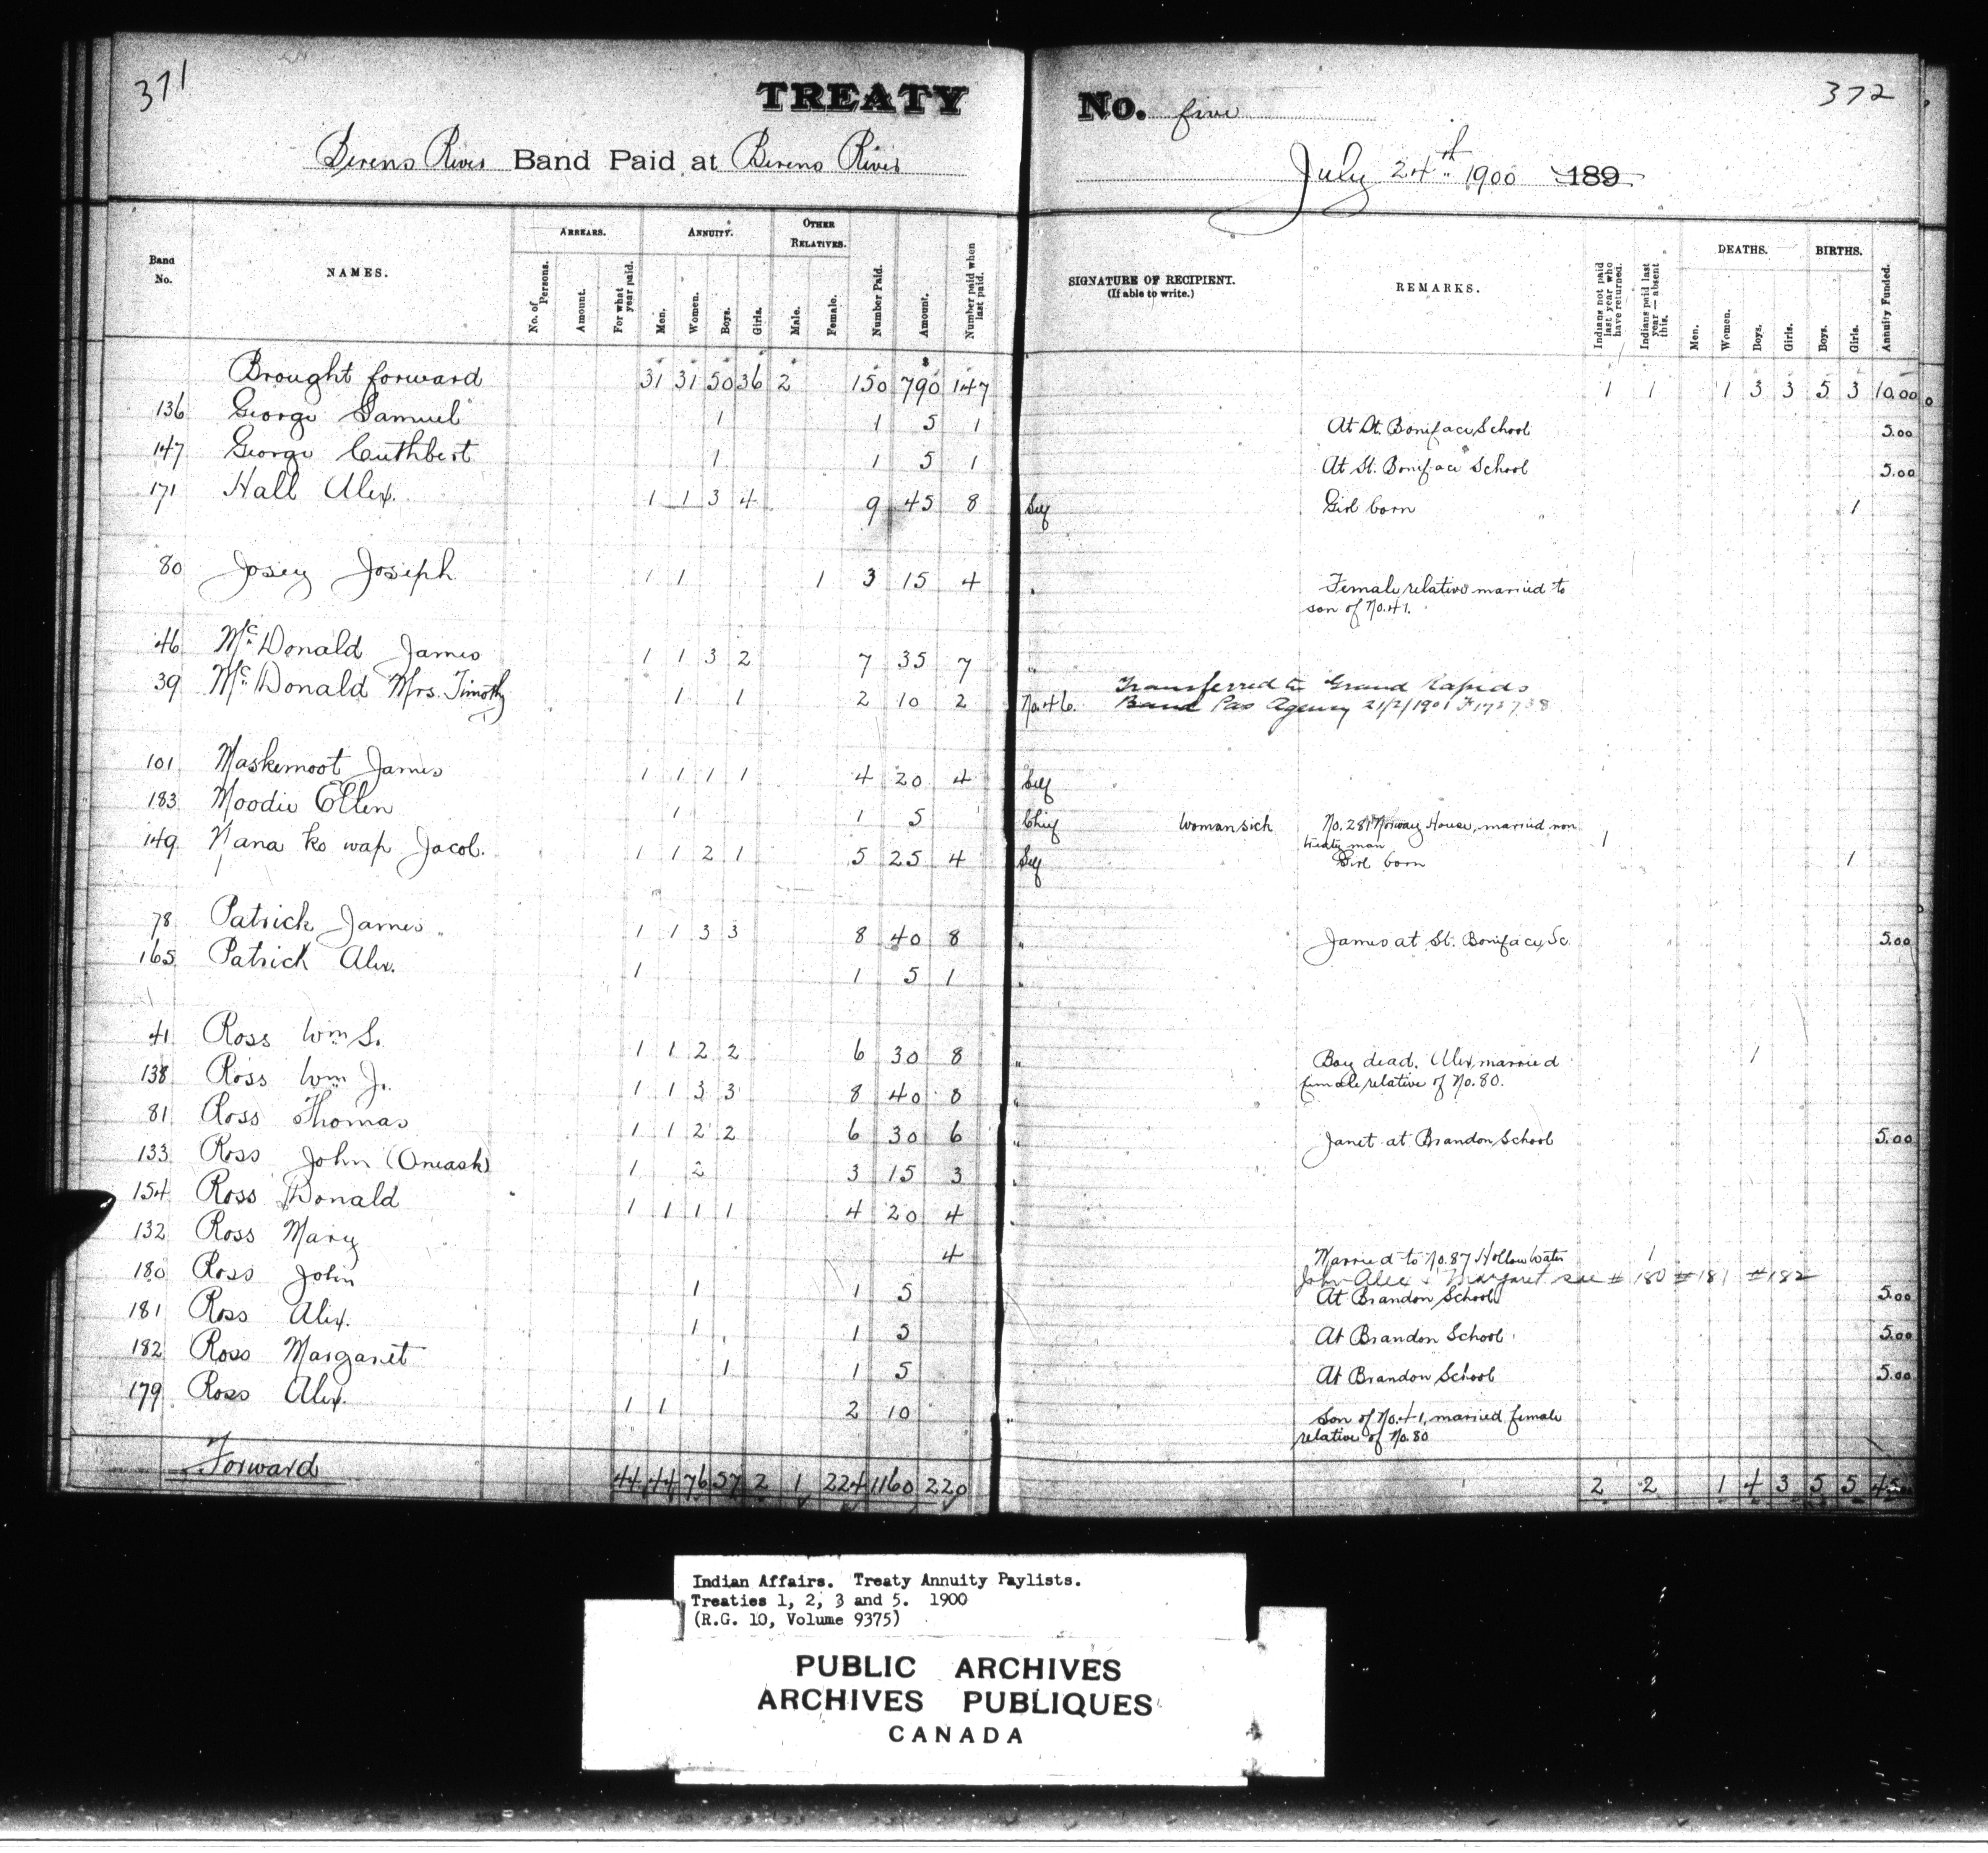 371
TREATY No. five
372
Berens River Band Paid at Berens River
July 24th 1900 189
Band No.
NAMES.
ARREARS.
No. of Persons.
Amount.
For what year paid.
ANNUITY.
Men.
Women.
Boys.
Girls.
OTHER RELATIVES.
Male.
Female.
Number Paid.
Amount.
Number paid when last paid.
SIGNATURE OF RECIPIENT.
(If able to write.)
REMARKS.
Indians not paid last year who have returned.
Indians paid last year—absent this.
DEATHS.
Men.
Women.
Boys.
Girls.
BIRTHS.
Boys.
Girls.
Annuity Funded.
Brought forward 31 31 50 36 2 150 $790 147 1 1 1 3 3 5 3 10.00
136 George Samuel 1 1 5 1 At St. Boniface School 5.00
147 George Cuthbert 1 1 5 1 At St. Boniface School 5.00
171 Hall Alex. 1 1 3 4 9 45 8 Self Girl born 1
80 Josey Joseph 1 1 1 3 15 4 " Female relative married to
son of No. 41.
46 McDonald James 1 1 3 2 7 35 7 "
39 McDonald Mrs. Timothy 1 1 2 10 2 No. 46. Transferred to Grand Rapids
Band Pas Agency 21/2/1901
101 Maskemoot James 1 1 1 1 4 20 4 Self
183 Moodie Ellen 1 1 5 Chief Woman sick No. 281 Norway House, married non
treaty man 1
149 Nana ko wap Jacob. 1 1 2 1 5 25 4 Self Girl born 1
78 Patrick James 1 1 3 3 8 40 8 " James at St. Boniface Sc. 5.00
165 Patrick Alex. 1 1 5 1
41 Ross Wm S. 1 1 2 2 6 30 8 " Boy dead. Alex married 1
female relative of No. 80.
138 Ross Wm J. 1 1 3 3 8 40 8 "
81 Ross Thomas 1 1 2 2 6 30 6 " Janet at Brandon School 5.00
133 Ross John (Oneash) 1 2 3 15 3 "
154 Ross Donald 1 1 1 1 4 20 4 "
132 Ross Mary 4 Married to No. 87 Hollow Water 1
John Alex & Margaret see # 180 # 181 # 182
180 Ross John 1 1 5 At Brandon School 5.00
181 Ross Alex. 1 1 5 At Brandon School 5.00
182 Ross Margaret 1 1 5 At Brandon School 5.00
179 Ross Alex. 1 1 2 10 " Son of No. 41, married female
relative of No. 80
Forward 44 44 76 57 2 1 224 1160 220 2 2 1 4 3 5 5
Indian Affairs. Treaty Annuity Paylists.
Treaties 1, 2, 3 and 5. 1900
(R.G. 10, Volume 9375)
PUBLIC ARCHIVES
ARCHIVES PUBLIQUES
CANADA